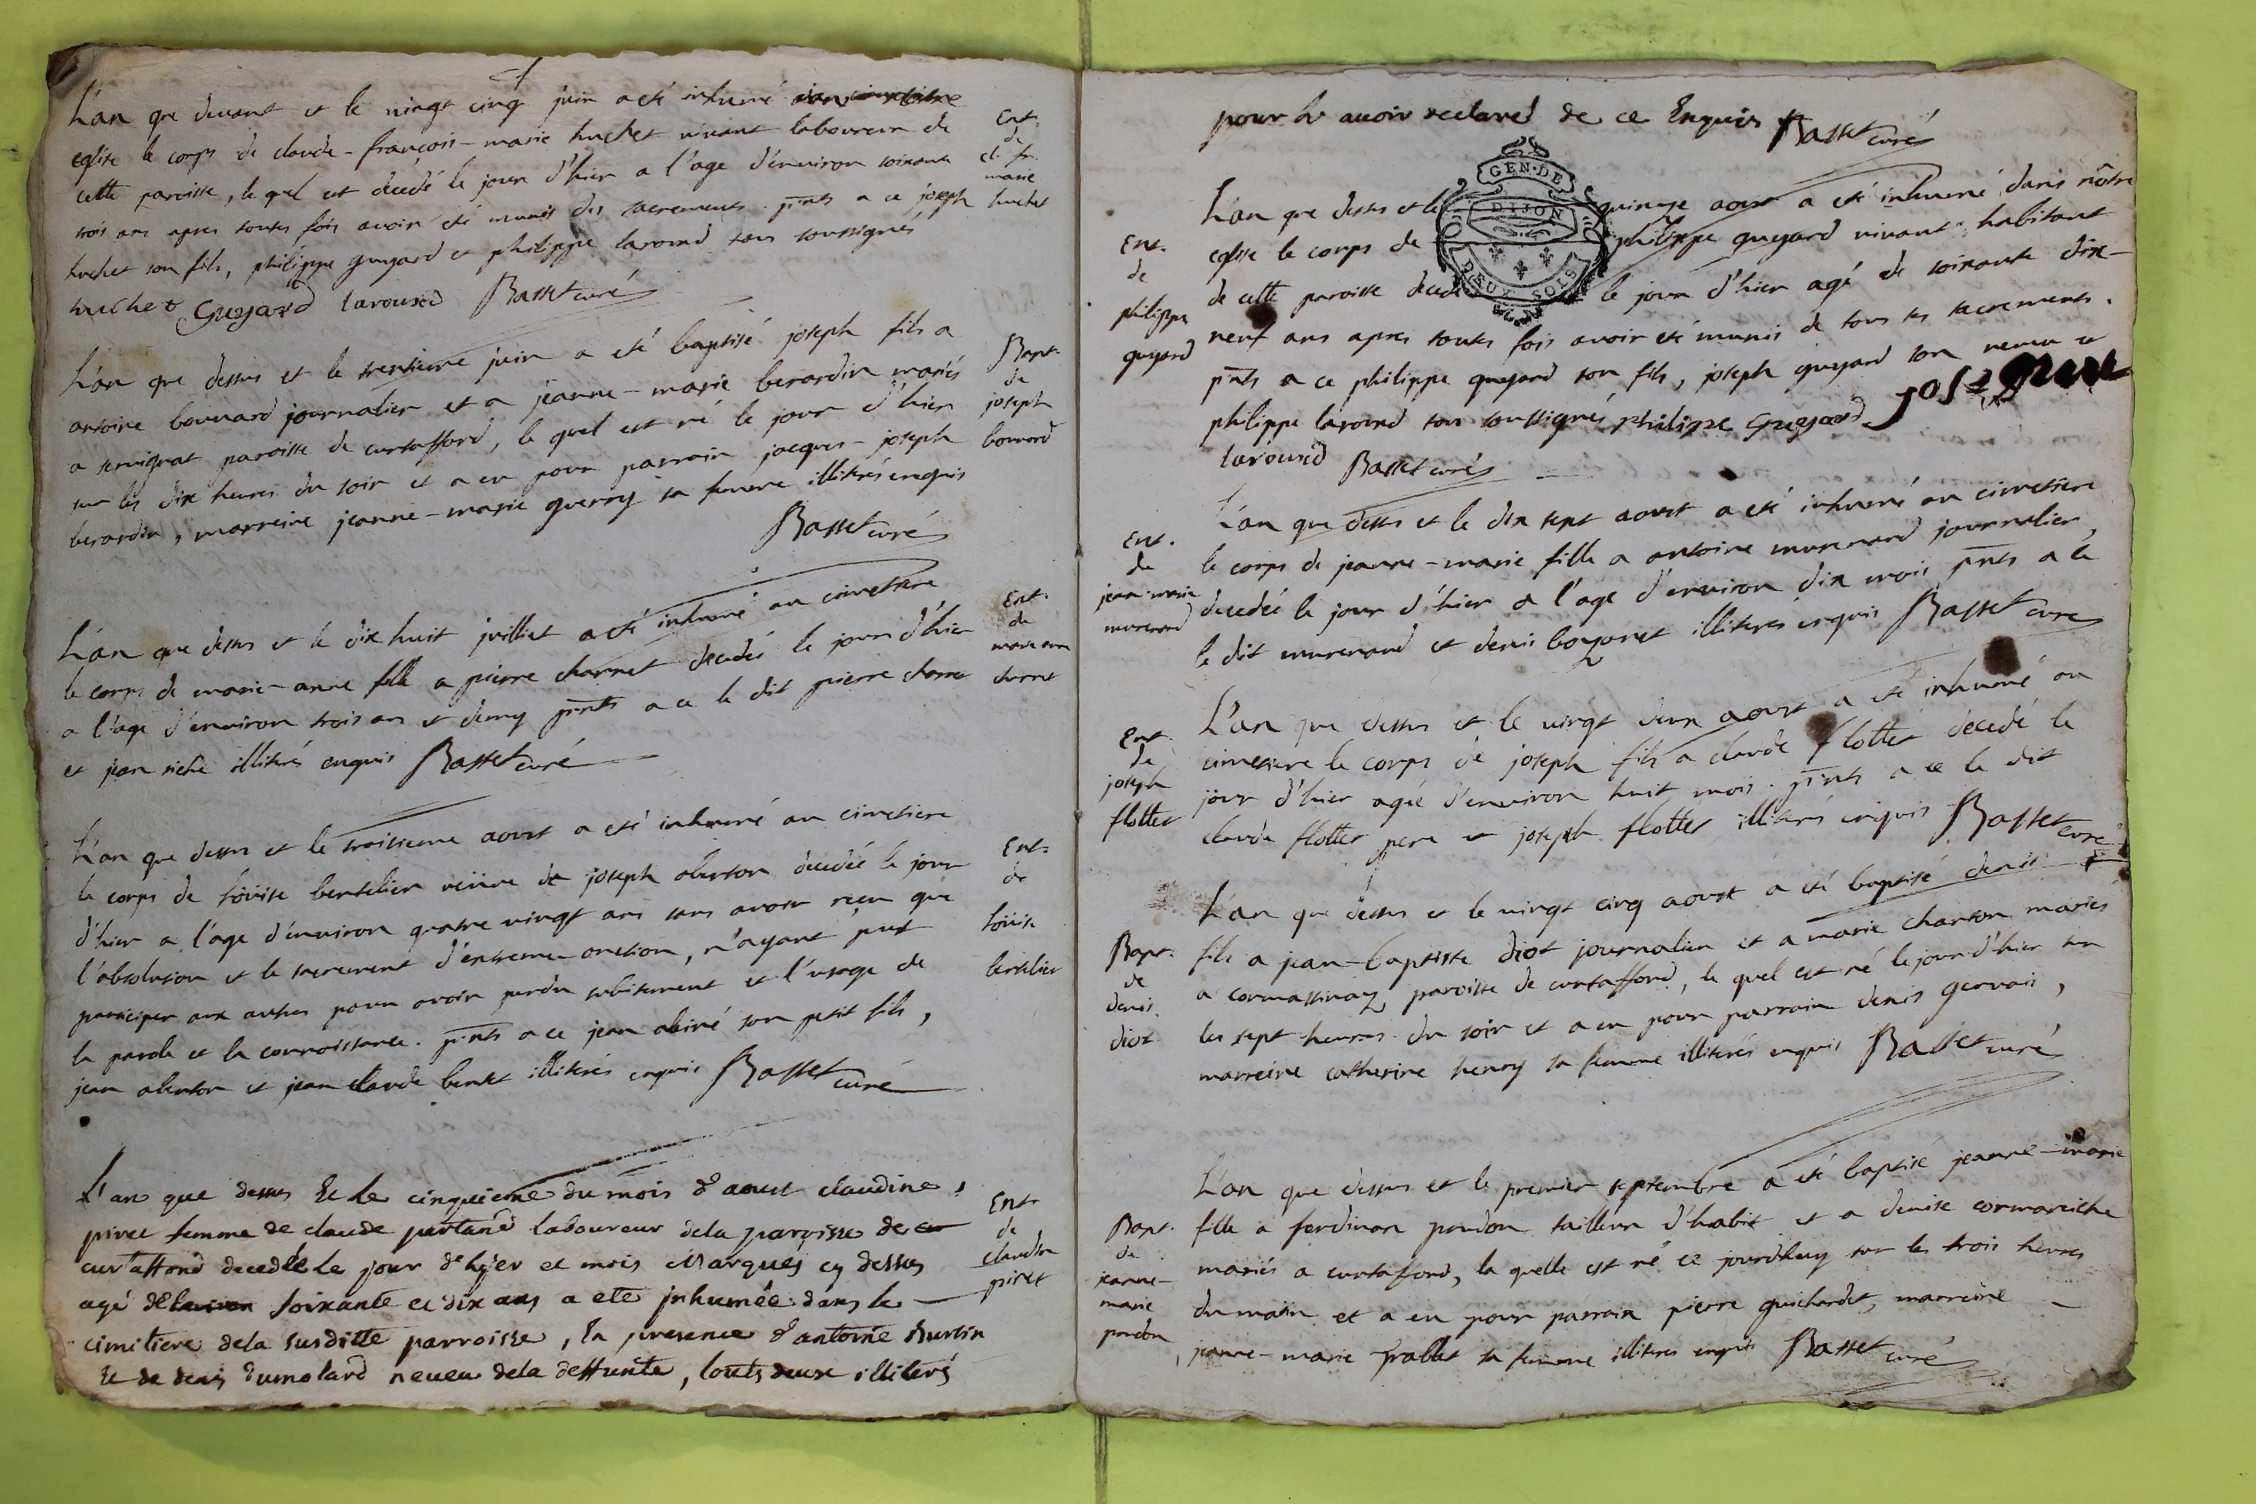 L'an que devant et le vingt cinq juin a eté inhumé
eglise le corps de claude-françois-marie huchet vivant laboureur de
cette paroisse, le quel est decedé le jour d'hier a l'age d'environ soixante
trois ans apres toutes fois avoir eté munis des sacrements. pnts a ce joseph
huchet son fils, philippe guyard et philippe laround tous soussignés
huchet Guyard laround Basset curé
Ent.
de
cl. fr.
marie
huchet
L'an que dessus et le trentieme juin a eté baptisé joseph fils a
antoine bonnard journalier et a jeanne-marie berardin mariés
a servignat paroisse de curtaffond, le quel est né le jour d'hier
sur les dix heures du soir et a eu pour parrain jacques-joseph
berardin, marreine jeanne-marie guerry sa femme illiterés enquis
Basset curé
Bapt.
de
joseph
bonnard
L'an que dessus et le dix huit juillet a eté inhumé au cimettiere
le corps de marie-anne fille a pierre charnet decedée le jour d'hier
a l'age d'environ trois ans et demy pnts a ce le dit pierre
et jean riche illiterés enquis Basset curé
Ent.
de
marie anne
charnet
L'an que dessus et le troisieme aoust a eté inhumé au cimetiere
le corps de loüise bertelier veüve de joseph decedée le jour
d'hier a l'age d'environ quatre vingt ans sans avoir reçu que
l'absolution et le sacrement d'extreme-onction, n'ayant put
participer aux autres pour avoir perdu subitement et l'usage de
la parole et la connoissance. pnts a ce jean son petit fils,
jean et jean claude illiterés enquis Basset curé
Ent.
de
loüise
bertelier
L'an que dessus Et le cinquieme du mois d'aoust claudine
piret femme de claude laboureur de la paroisse de
curtaffond decedée le jour d'hyer et mois Marqués cy dessus
agé soixante et dix ans a eté jnhumée dans le
cimitiere de la susditte parroisse, En presence d'antoine
Et de denis dumolard neveu de la deffunte, touts deux illiterés
Ent.
de
claudine
piret
pour de ce Enquis Basset curé
GEN. DE
DIJON
DEUX SOLS
L'an que dessus et le quinze aoust a eté inhumé dans nôtre
eglise le corps de philippe guyard vivant habitant
de cette paroisse decedé le jour d'hier agé de soixante dix-
neuf ans apres toutes fois avoir eté munis de tous ses sacrements.
pnts a ce philippe guyard son fils, joseph guyard son neveu et
philippe laround tous soussignés philippe Guyard
laround Basset curé
Ent.
de
philippe
guyard
L'an que dessus et le dix sept aoust a eté inhumé au cimettiere
le corps de jeanne-marie fille a antoine journalier,
decedée le jour d'hier a l'age d'environ dix mois pnts a ce
le dit et denis illiterés enquis Basset curé
Ent.
de
jean marie
L'an que dessus et le vingt deux aoust a eté inhumé au
cimetiere le corps de joseph fils a claude flottet decedé le
jour d'hier agé d'environ huit mois. pnts a ce le dit
claude flottet pere et joseph flottet illiterés enquis Basset curé
Ent.
de
joseph
flottet
L'an que dessus et le vingt cinq aoust a eté baptisé denis
fils a jean-baptiste diot journalier et a marie charton mariés
a cormassinaz, paroisse de curtaffond, le quel est né le jour d'hier sur
les sept heures du soir et a eu pour parrain denis gervais,
marreine catherine henry sa femme illiterés enquis Basset curé
Bapt.
de
denis
diot
L'an que dessus et le premier septembre a eté baptisé jeanne-marie
fille a ferdinan pondon tailleur d'habit et a denise cormareiche
mariés a curtaffond, la quelle est né ce jourdhuy sur les trois heures
du matin et a eu pour parrain pierre guichardet, marreine
jeanne-marie sa femme illiteres enquis Basset curé
Bapt.
de
jeanne-
marie
pondon